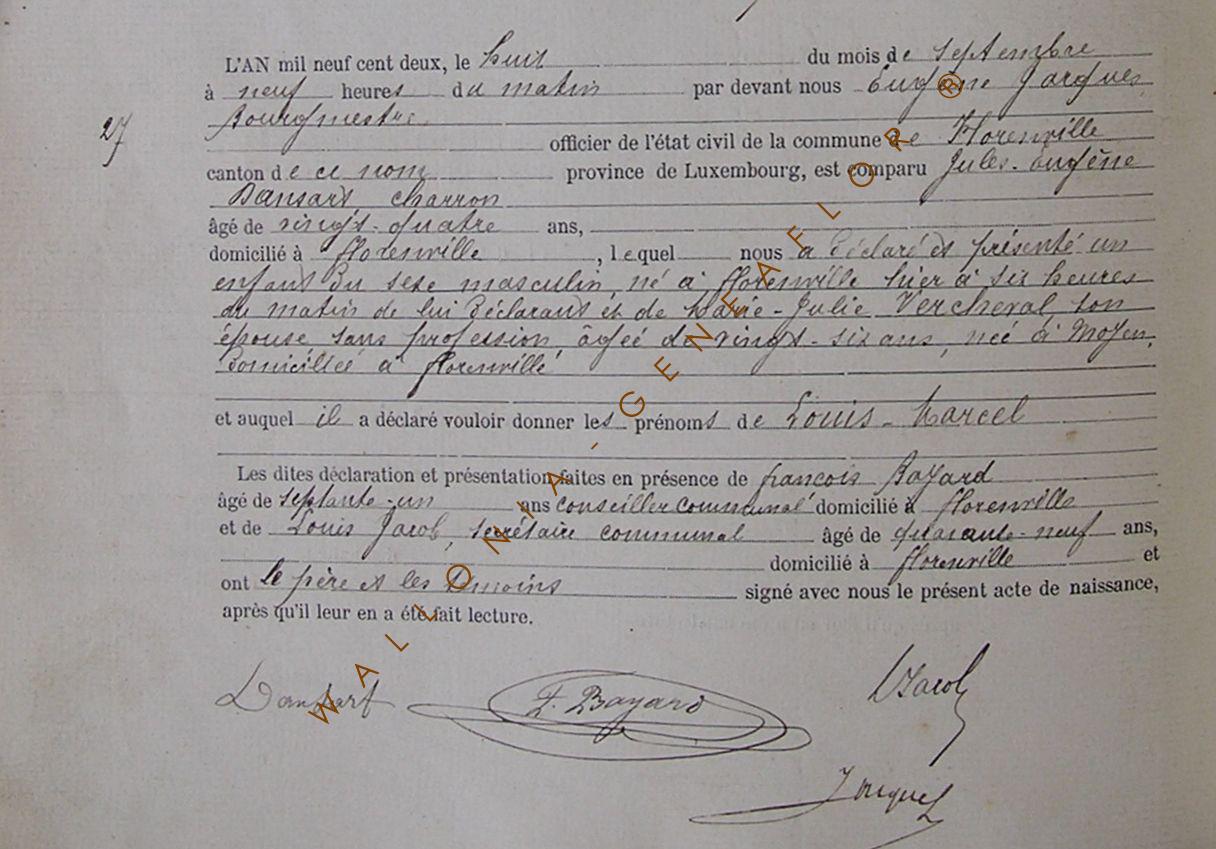 L'AN mil neuf cent deux, le huit du mois de septembre
à neuf heures du matin par devant nous Eugène Jacques
27
Bourgmestre
officier de l'état civil de la commune de Florenville
canton de ce nom province de Luxembourg, est comparu Jules-Eugène
Dansart charron
âgé de vingt-quatre ans,
domicilié à florenville, lequel nous a déclaré et présenté un
enfant du sexe masculin, né à florenville hier à six heures
du matin de lui déclarant et de Marie-Julie Vercheval, son
épouse sans profession, âgée de vingt-six ans, née à Moyen,
domiciliée à florenville
et auquel il a déclaré vouloir donner les prénoms de Louis-Marcel
Les dites déclaration et présentation faites en présence de françois Bayard
âgé de septante-un ans conseiller communal domicilié à florenville
et de Louis Jacob, secrétaire communal âgé de quarante-neuf ans,
domicilié à florenville et
ont le père et les témoins signé avec nous le présent acte de naissance,
après qu'il leur en a été fait lecture.
Dansart F. Bayard LJacob
WALLONIA-GENEAFLOR®